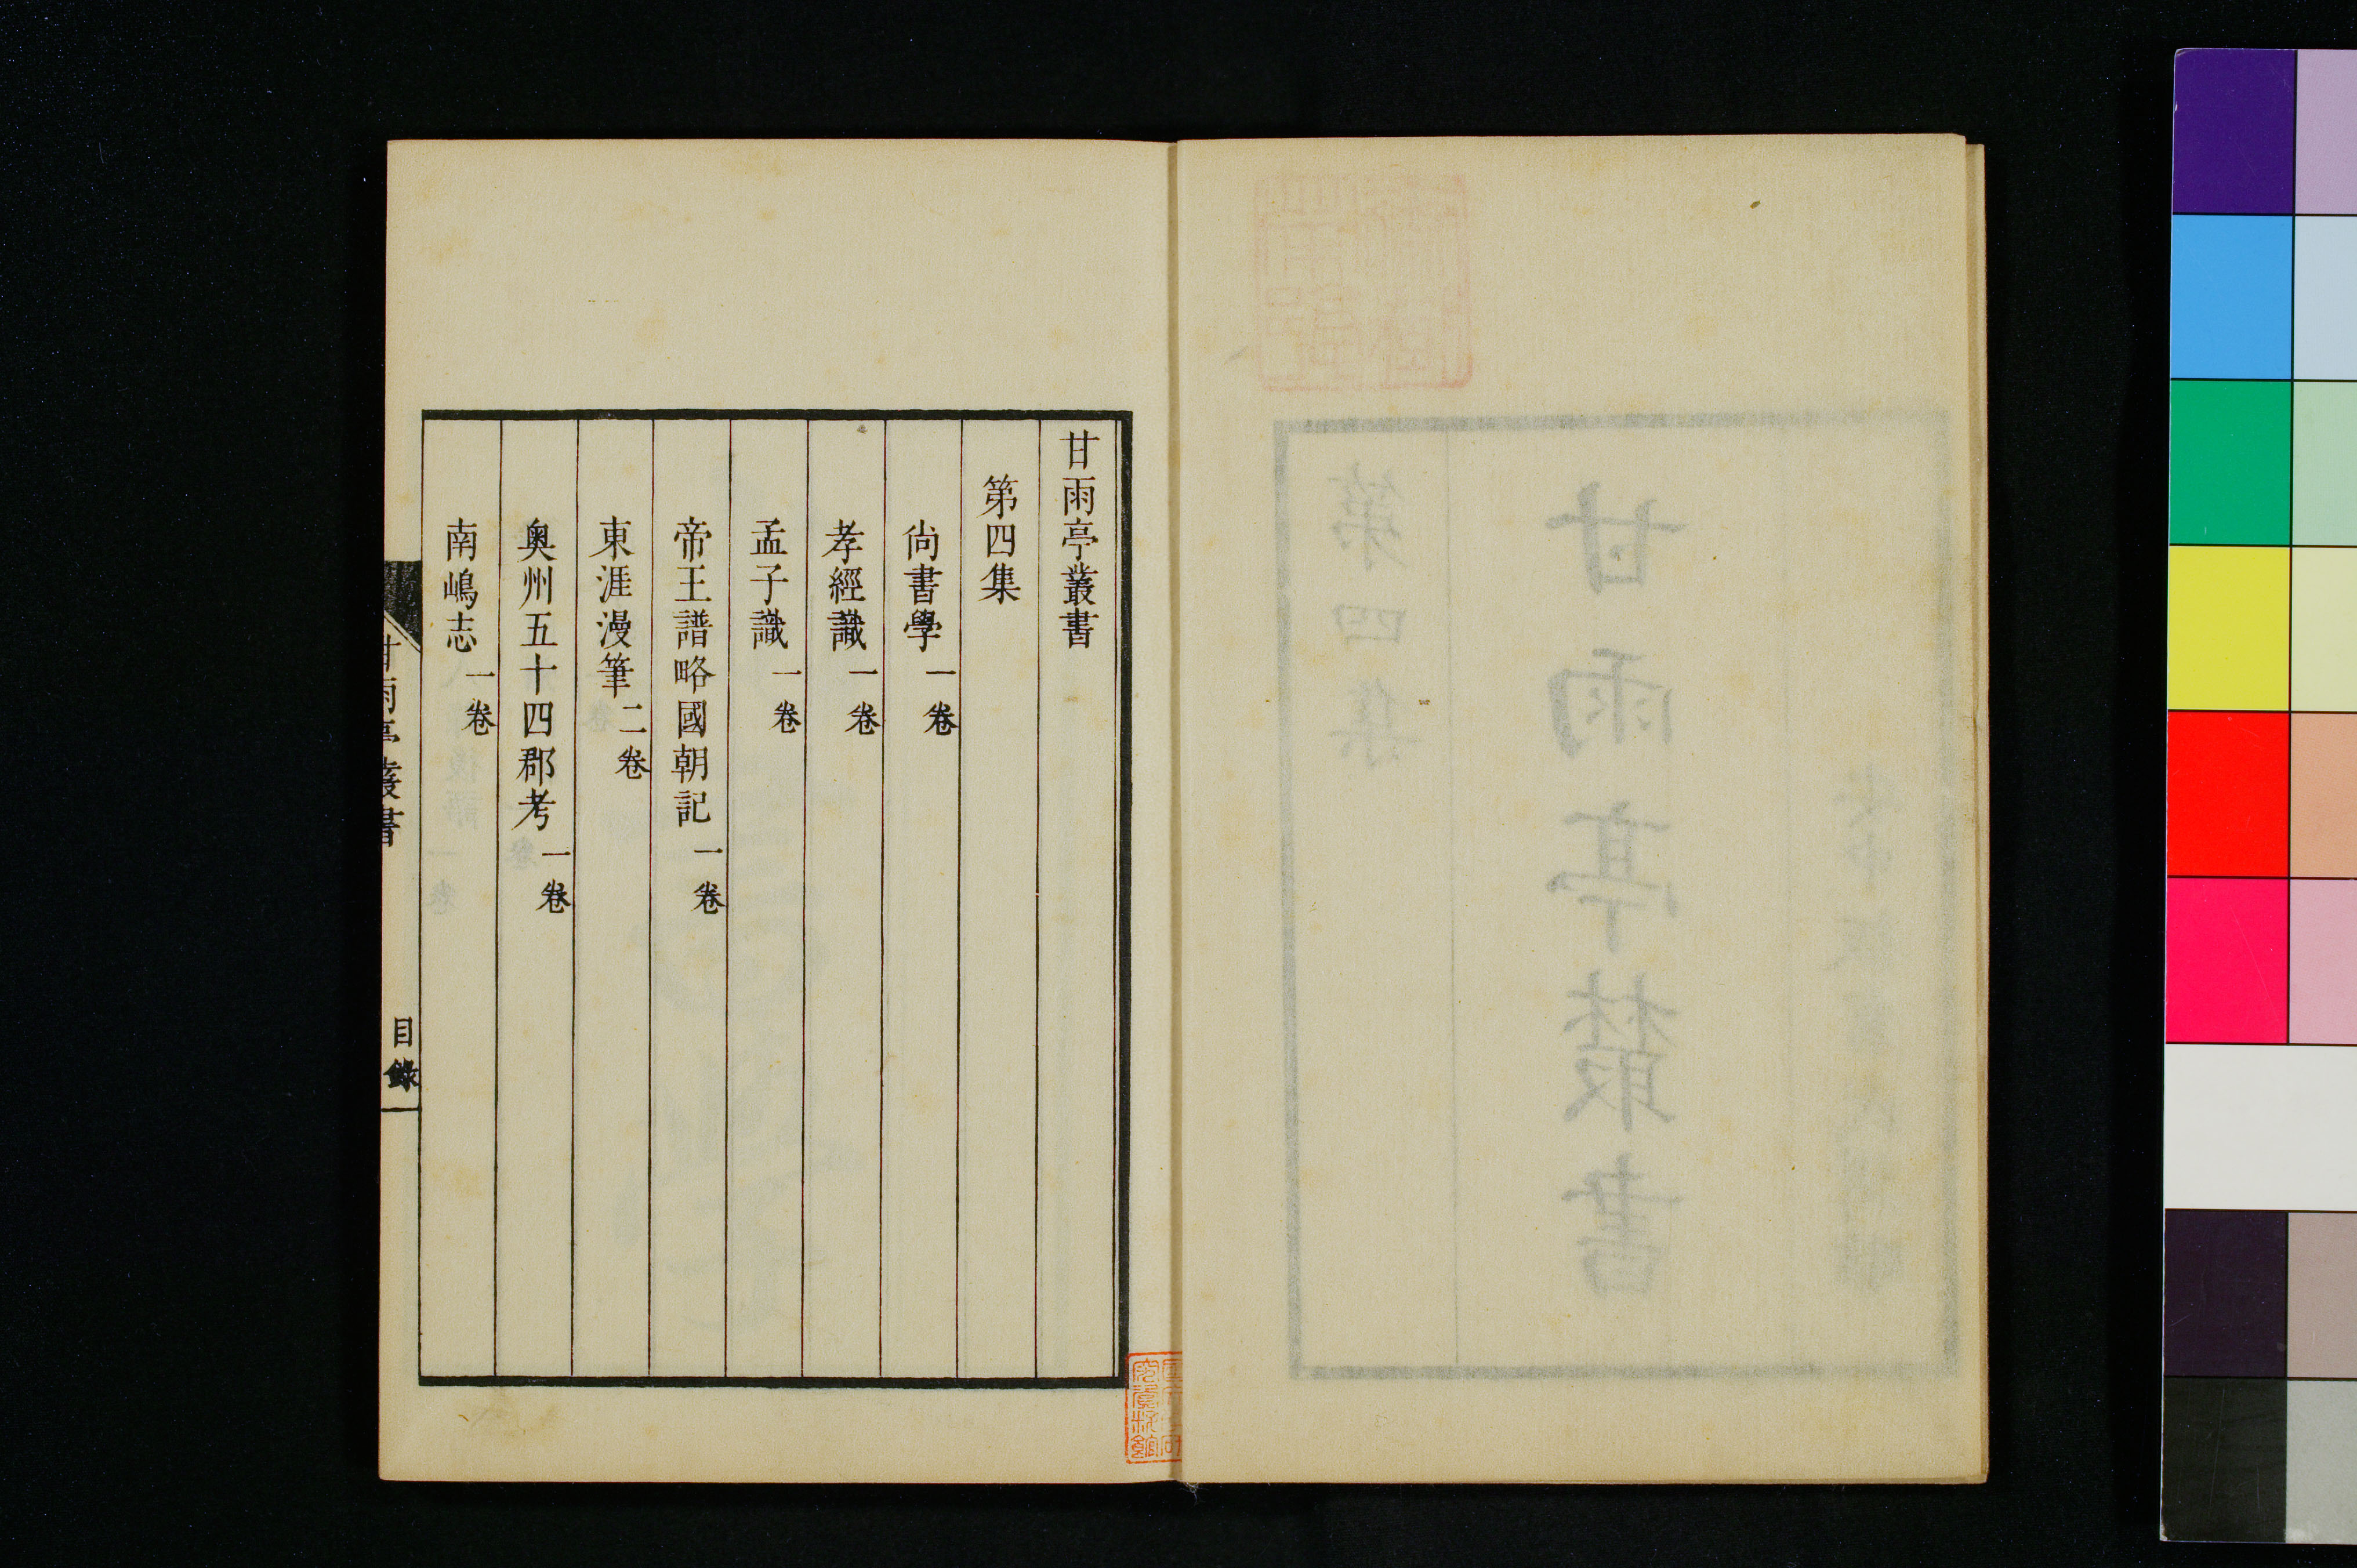 甘雨亭叢書
第四集
尙書學一卷
孝經識一卷
孟子識一卷
帝王譜略國朝記一卷
東涯漫筆二卷
奥州五十四郡考一卷
南嶋志一卷
甘雨亭叢書 目錄 一
甘雨亭叢書
第四集